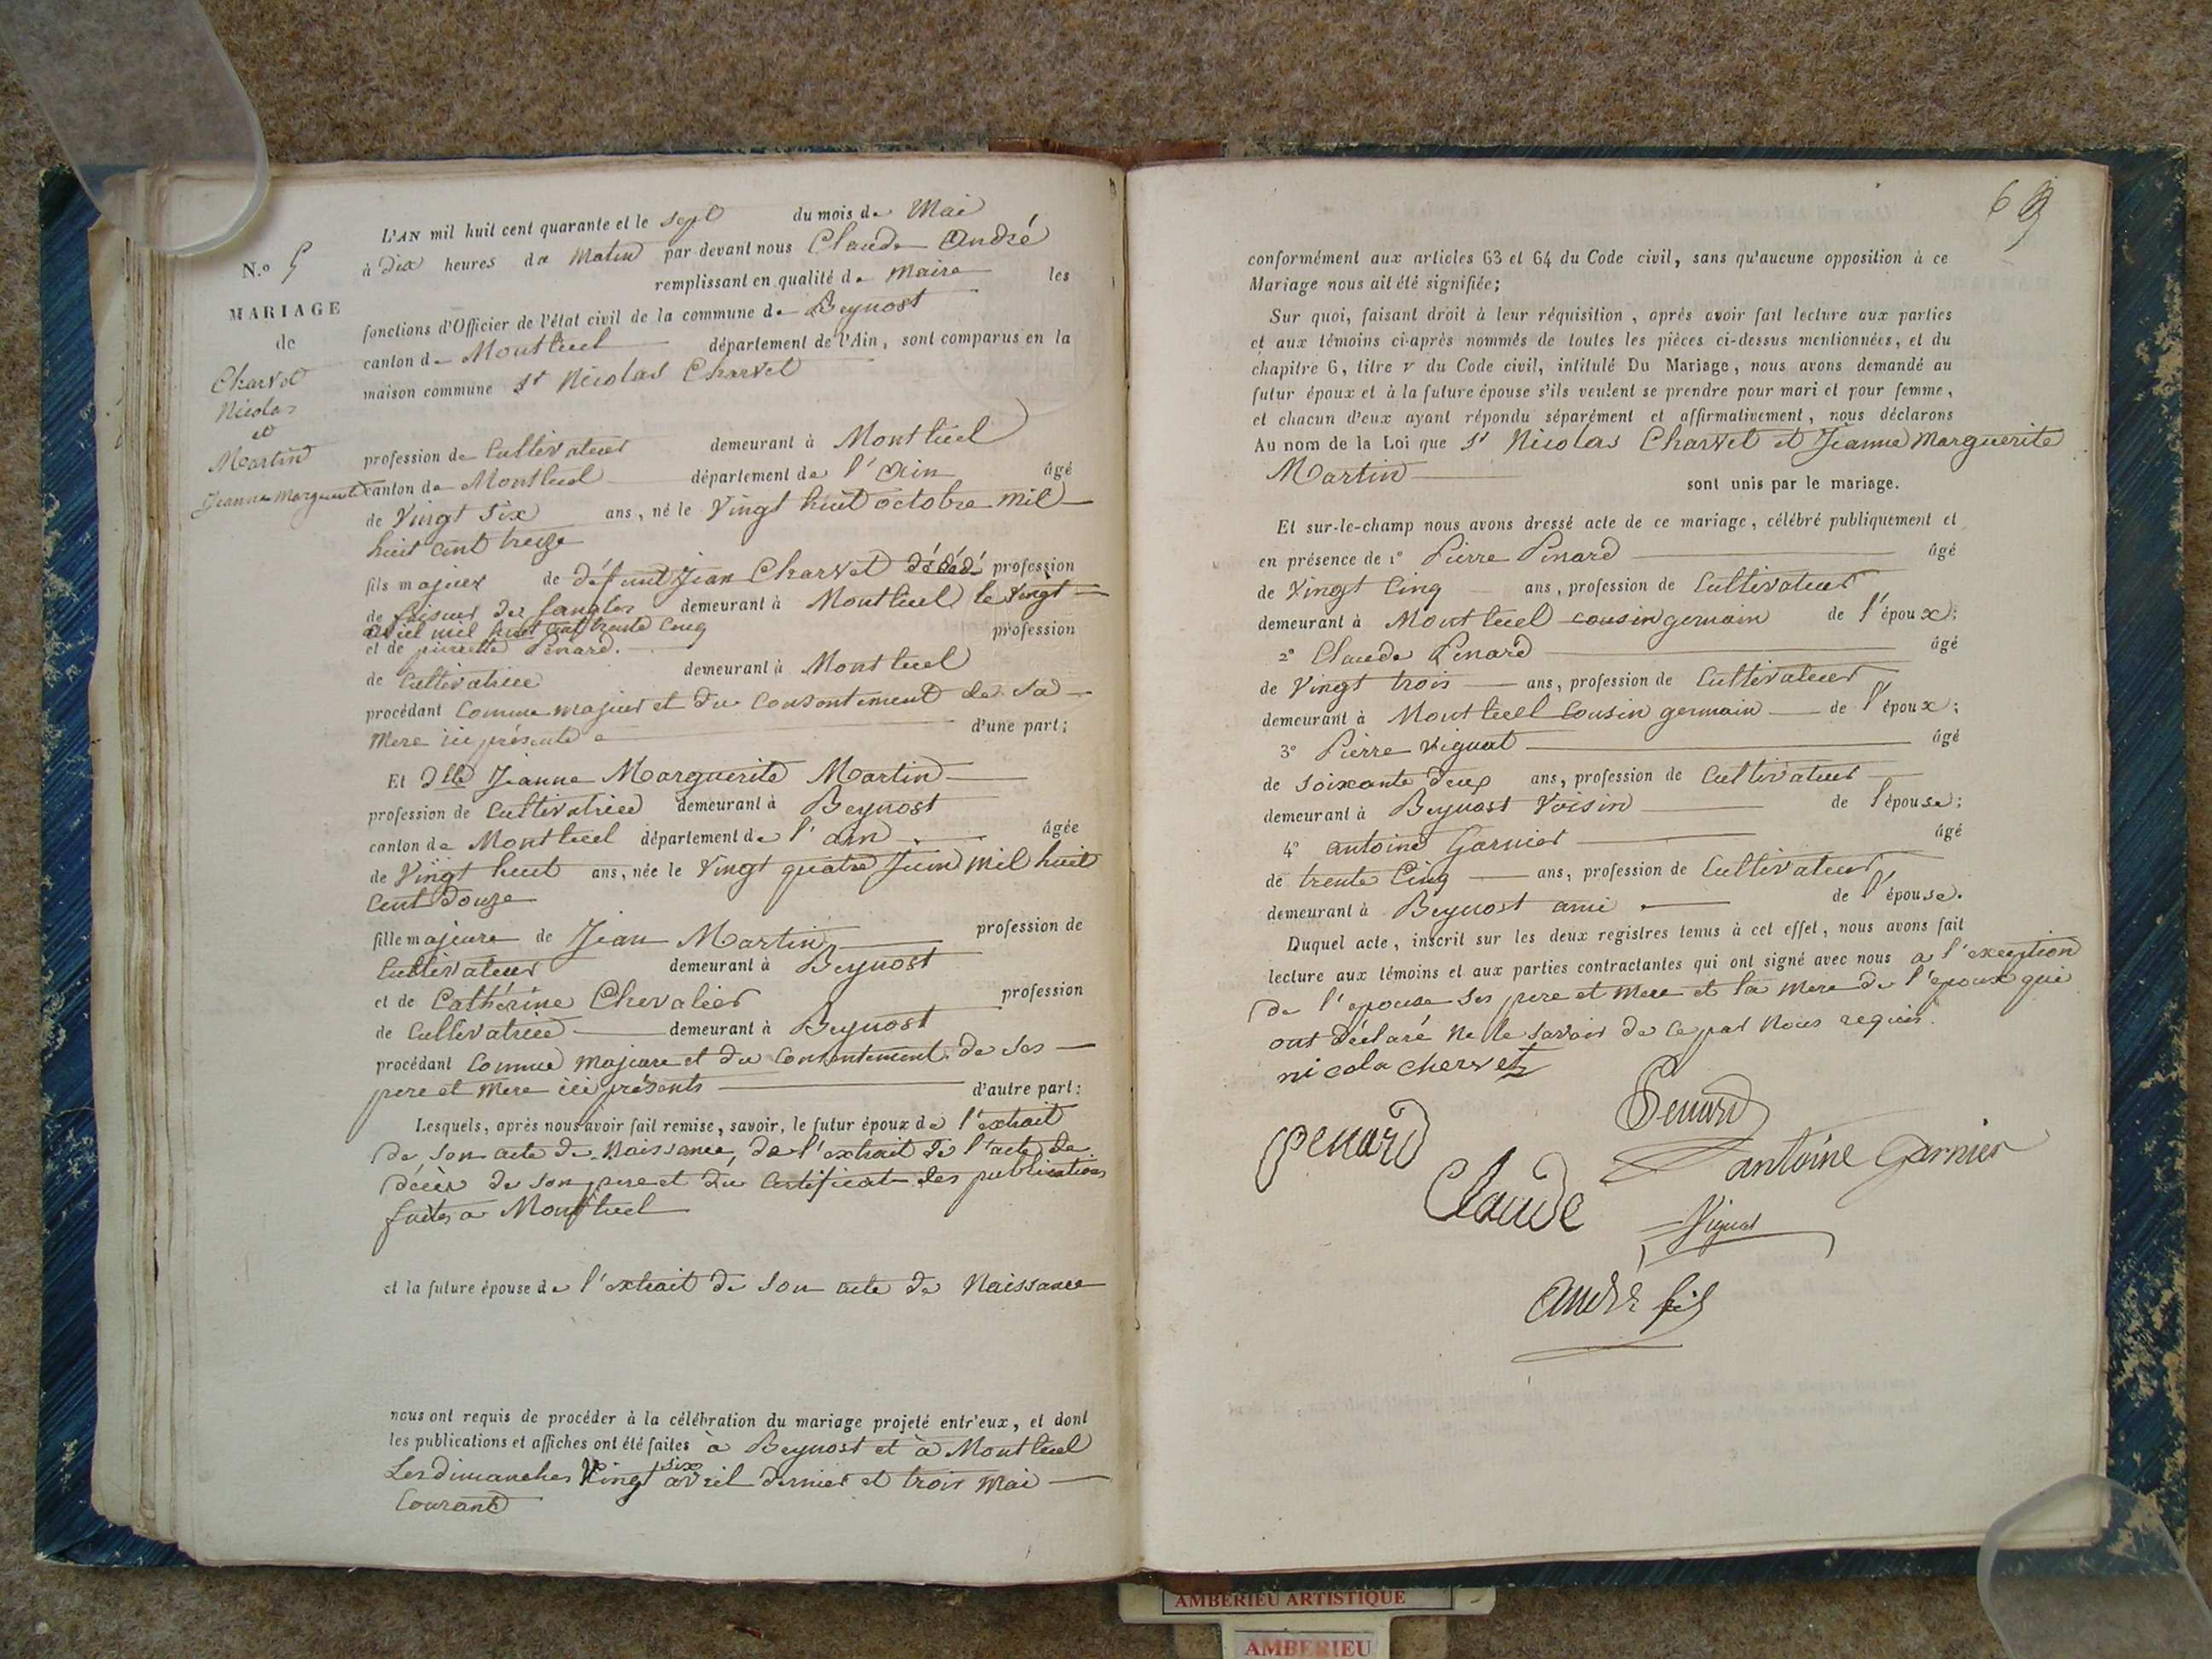 N.º 5
MARIAGE
de
Charvet
Nicolas
et
Martin
Jeanne Marguerite
L'AN mil huit cent quarante et le sept du mois de Mai
à dix heures du Matin par-devant nous Claude André
remplissant en qualité de Maire les
fonctions d'Officier de l'état civil de la commune de Beynost
canton de Montluel département de l'Ain, sont comparus en la
maison commune Sr Nicolas Charvet
profession de Cultivateur demeurant à Montluel
canton de Montluel département de l'Ain âgé
de Vingt Six ans, né le Vingt huit octobre mil
huit cent treize
fils majeur de défunt Jean Charvet décédé profession
de faiseur de sangles demeurant à Montluel le vingt
avril mil huit cent trente cinq
et de pierrette Penard. profession
de Cultivatrice demeurant à Montluel
procédant Comme majeur et du Consentement de sa
Mere ici présente d'une part;
Et Dlle Jeanne Marguerite Martin
profession de Cultivatrice demeurant à Beynost
canton de Montluel département de l'ain âgée
de Vingt huit ans, née le Vingt quatre Juin mil huit
Cent Douze
fille majeure de Jean Martin profession de
Cultivateur demeurant à Beynost
et de Cathérine Chevalier profession
de Cultivatrice demeurant à Beynost
procédant Comme Majeure et du Consentement de ses
pere et Mere ici présents d'autre part:
Lesquels, après nous avoir fait remise, savoir, le futur époux de l'extrait
De son acte de Naissance, de l'extrait de l'acte de
décès de son pere et du Certificat des publications
faites à Montluel
et la future épouse de l'extrait de son acte de Naissance
nous ont requis de procéder à la célébration du mariage projeté entr'eux, et dont
les publications et affiches ont été faites à Beynost et à Montluel
six
Les dimanches Vingt avril dernier et trois Mai
Courant
69
conformément aux articles 63 et 64 du Code civil, sans qu'aucune opposition à ce
Mariage nous ait été signifiée;
Sur quoi, faisant droit à leur réquisition, après avoir fait lecture aux parties
et aux témoins ci-après nommés de toutes les pièces ci-dessus mentionnées, et du
chapitre 6, titre v du Code civil, intitulé Du Mariage, nous avons demandé au
futur époux et à la future épouse s'ils veulent se prendre pour mari et pour femme,
et chacun d'eux ayant répondu séparément et affirmativement, nous déclarons
Au nom de la Loi que Sr Nicolas Charvet et Jeanne Marguerite
Martin sont unis par le mariage.
Et sur-le-champ nous avons dressé acte de ce mariage, célébré publiquement et
en présence de 1º Pierre Penard âgé
de Vingt Cinq ans, profession de Cultivateur
demeurant à Montluel cousin germain de l'époux;
2º Claude Penard âgé
de Vingt trois ans, profession de Cultivateur
demeurant à Montluel Cousin germain de l'époux;
3º Pierre Vignat âgé
de Soixante deux ans, profession de Cultivateur
demeurant à Beynost Voisin de l'épouse;
4º antoine Garnier âgé
de trente Cinq ans, profession de Cultivateur
demeurant à Beynost ami de l'épouse.
Duquel acte, inscrit sur les deux registres tenus à cet effet, nous avons fait
lecture aux témoins et aux parties contractantes qui ont signé avec nous à l'exception
De l'épouse ses pere et Mere et la Mere de l'époux qui
ont déclaré ne le savoir de ce par Nous requis.
nicola chervet
Penard
penard
antoine garnier
Claude
Vignat
André fils
AMBERIEU ARTISTIQUE
AMBERIEU